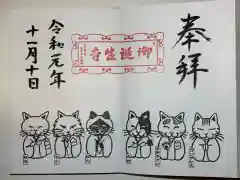 奉拝
御誕生寺
令和元年
十一月十日